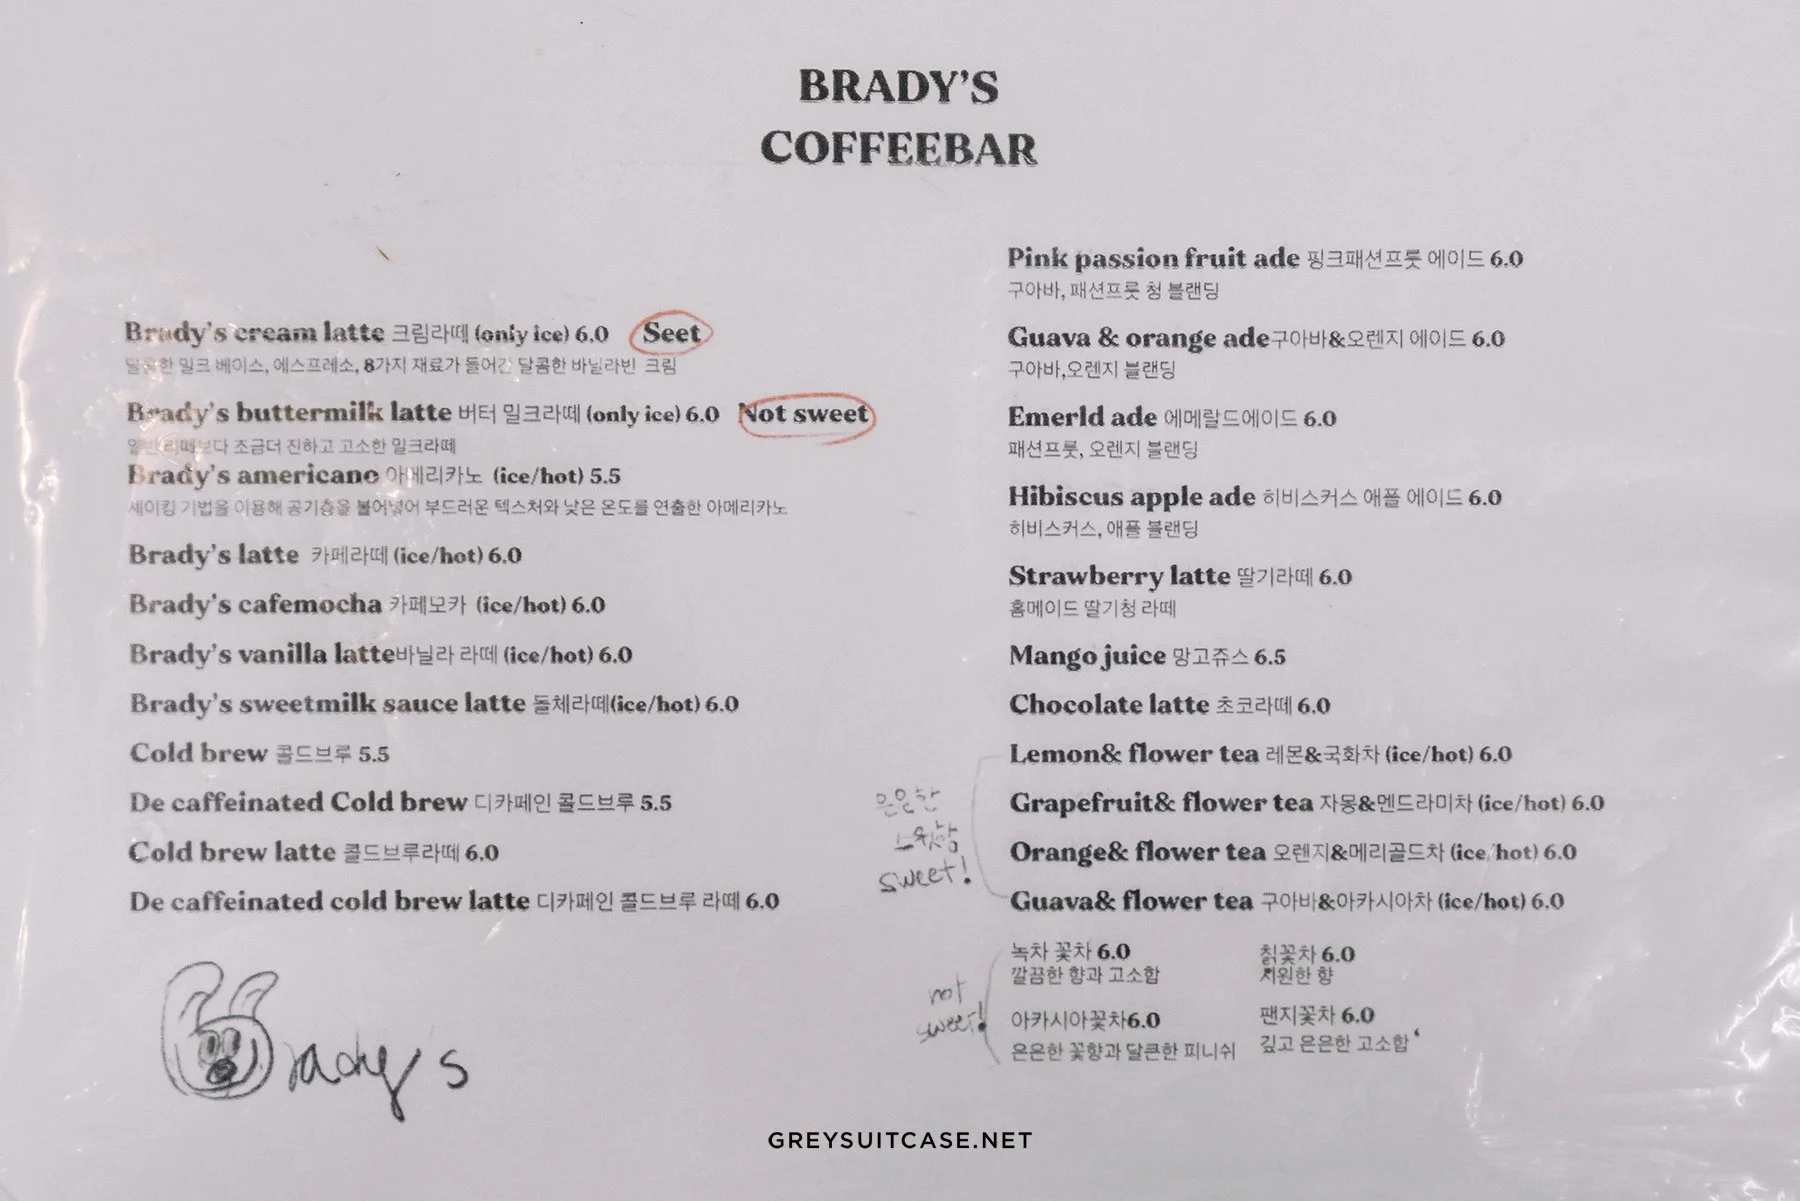 BRADY'S
COFFEEBAR
Brady's cream latte 크림라떼 (only ice) 6.0 Seet
달콤한 밀크 베이스, 에스프레소, 8가지 재료가 들어간 달콤한 바닐라빈 크림
Brady's buttermilk latte 버터 밀크라떼 (only ice) 6.0 Not sweet
일반 라떼보다 조금더 진하고 고소한 밀크라떼
Brady's americano 아메리카노 (ice/hot) 5.5
셰이킹 기법을 이용해 공기층을 불어넣어 부드러운 텍스처와 낮은 온도를 연출한 아메리카노
Brady's latte 카페라떼 (ice/hot) 6.0
Brady's cafemocha 카페모카 (ice/hot) 6.0
Brady's vanilla latte바닐라 라떼 (ice/hot) 6.0
Brady's sweetmilk sauce latte 돌체라떼(ice/hot) 6.0
Cold brew 콜드브루 5.5
De caffeinated Cold brew 디카페인 콜드브루 5.5
Cold brew latte 콜드브루라떼 6.0
De caffeinated cold brew latte 디카페인 콜드브루 라떼 6.0
Brady's
Pink passion fruit ade 핑크패션프룻 에이드 6.0
구아바, 패션프룻 청 블랜딩
Guava & orange ade구아바&오렌지 에이드 6.0
구아바,오렌지 블랜딩
Emerld ade 에메랄드에이드 6.0
패션프룻, 오렌지 블랜딩
Hibiscus apple ade 히비스커스 애플 에이드 6.0
히비스커스, 애플 블랜딩
Strawberry latte 딸기라떼 6.0
홈메이드 딸기청 라떼
Mango juice 망고쥬스 6.5
Chocolate latte 초코라떼 6.0
Lemon& flower tea 레몬&국화차 (ice/hot) 6.0
Grapefruit& flower tea 자몽&멘드라미차 (ice/hot) 6.0
Orange& flower tea 오렌지&메리골드차 (ice/hot) 6.0
Guava& flower tea 구아바&아카시아차 (ice/hot) 6.0
은은한
sweet!
녹차 꽃차 6.0
깔끔한 향과 고소함
칡꽃차 6.0
시원한 향
아카시아꽃차6.0
은은한 꽃향과 달큰한 피니쉬
팬지꽃차 6.0
깊고 은은한 고소함
not
sweet!
GREYSUITCASE.NET